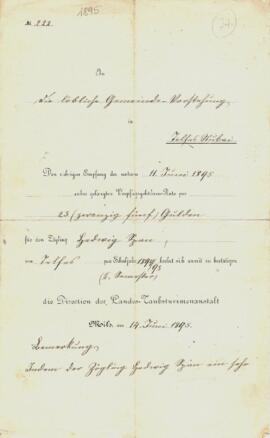 1895
№ 222.
24.
An
die löbliche Gemeinde-Vorstehung
in
Telfes Stubai
Den richtigen Empfang der unterm 11. Juni 1895
anher gelangten Verpflegsgebüren-Rate per
25 (zwanzig fünf) Gulden
für den Zögling Hedwig Span,
Telfes pro Schuljahr 1894/95 beehrt sich somit zu bestätigen
(2. Semester)
die Direction der Landes-Taubstummenanstalt
Mils, am 14. Juni 1895.
Bemerkung.
Indem der Zögling Hedwig Span ein sehr